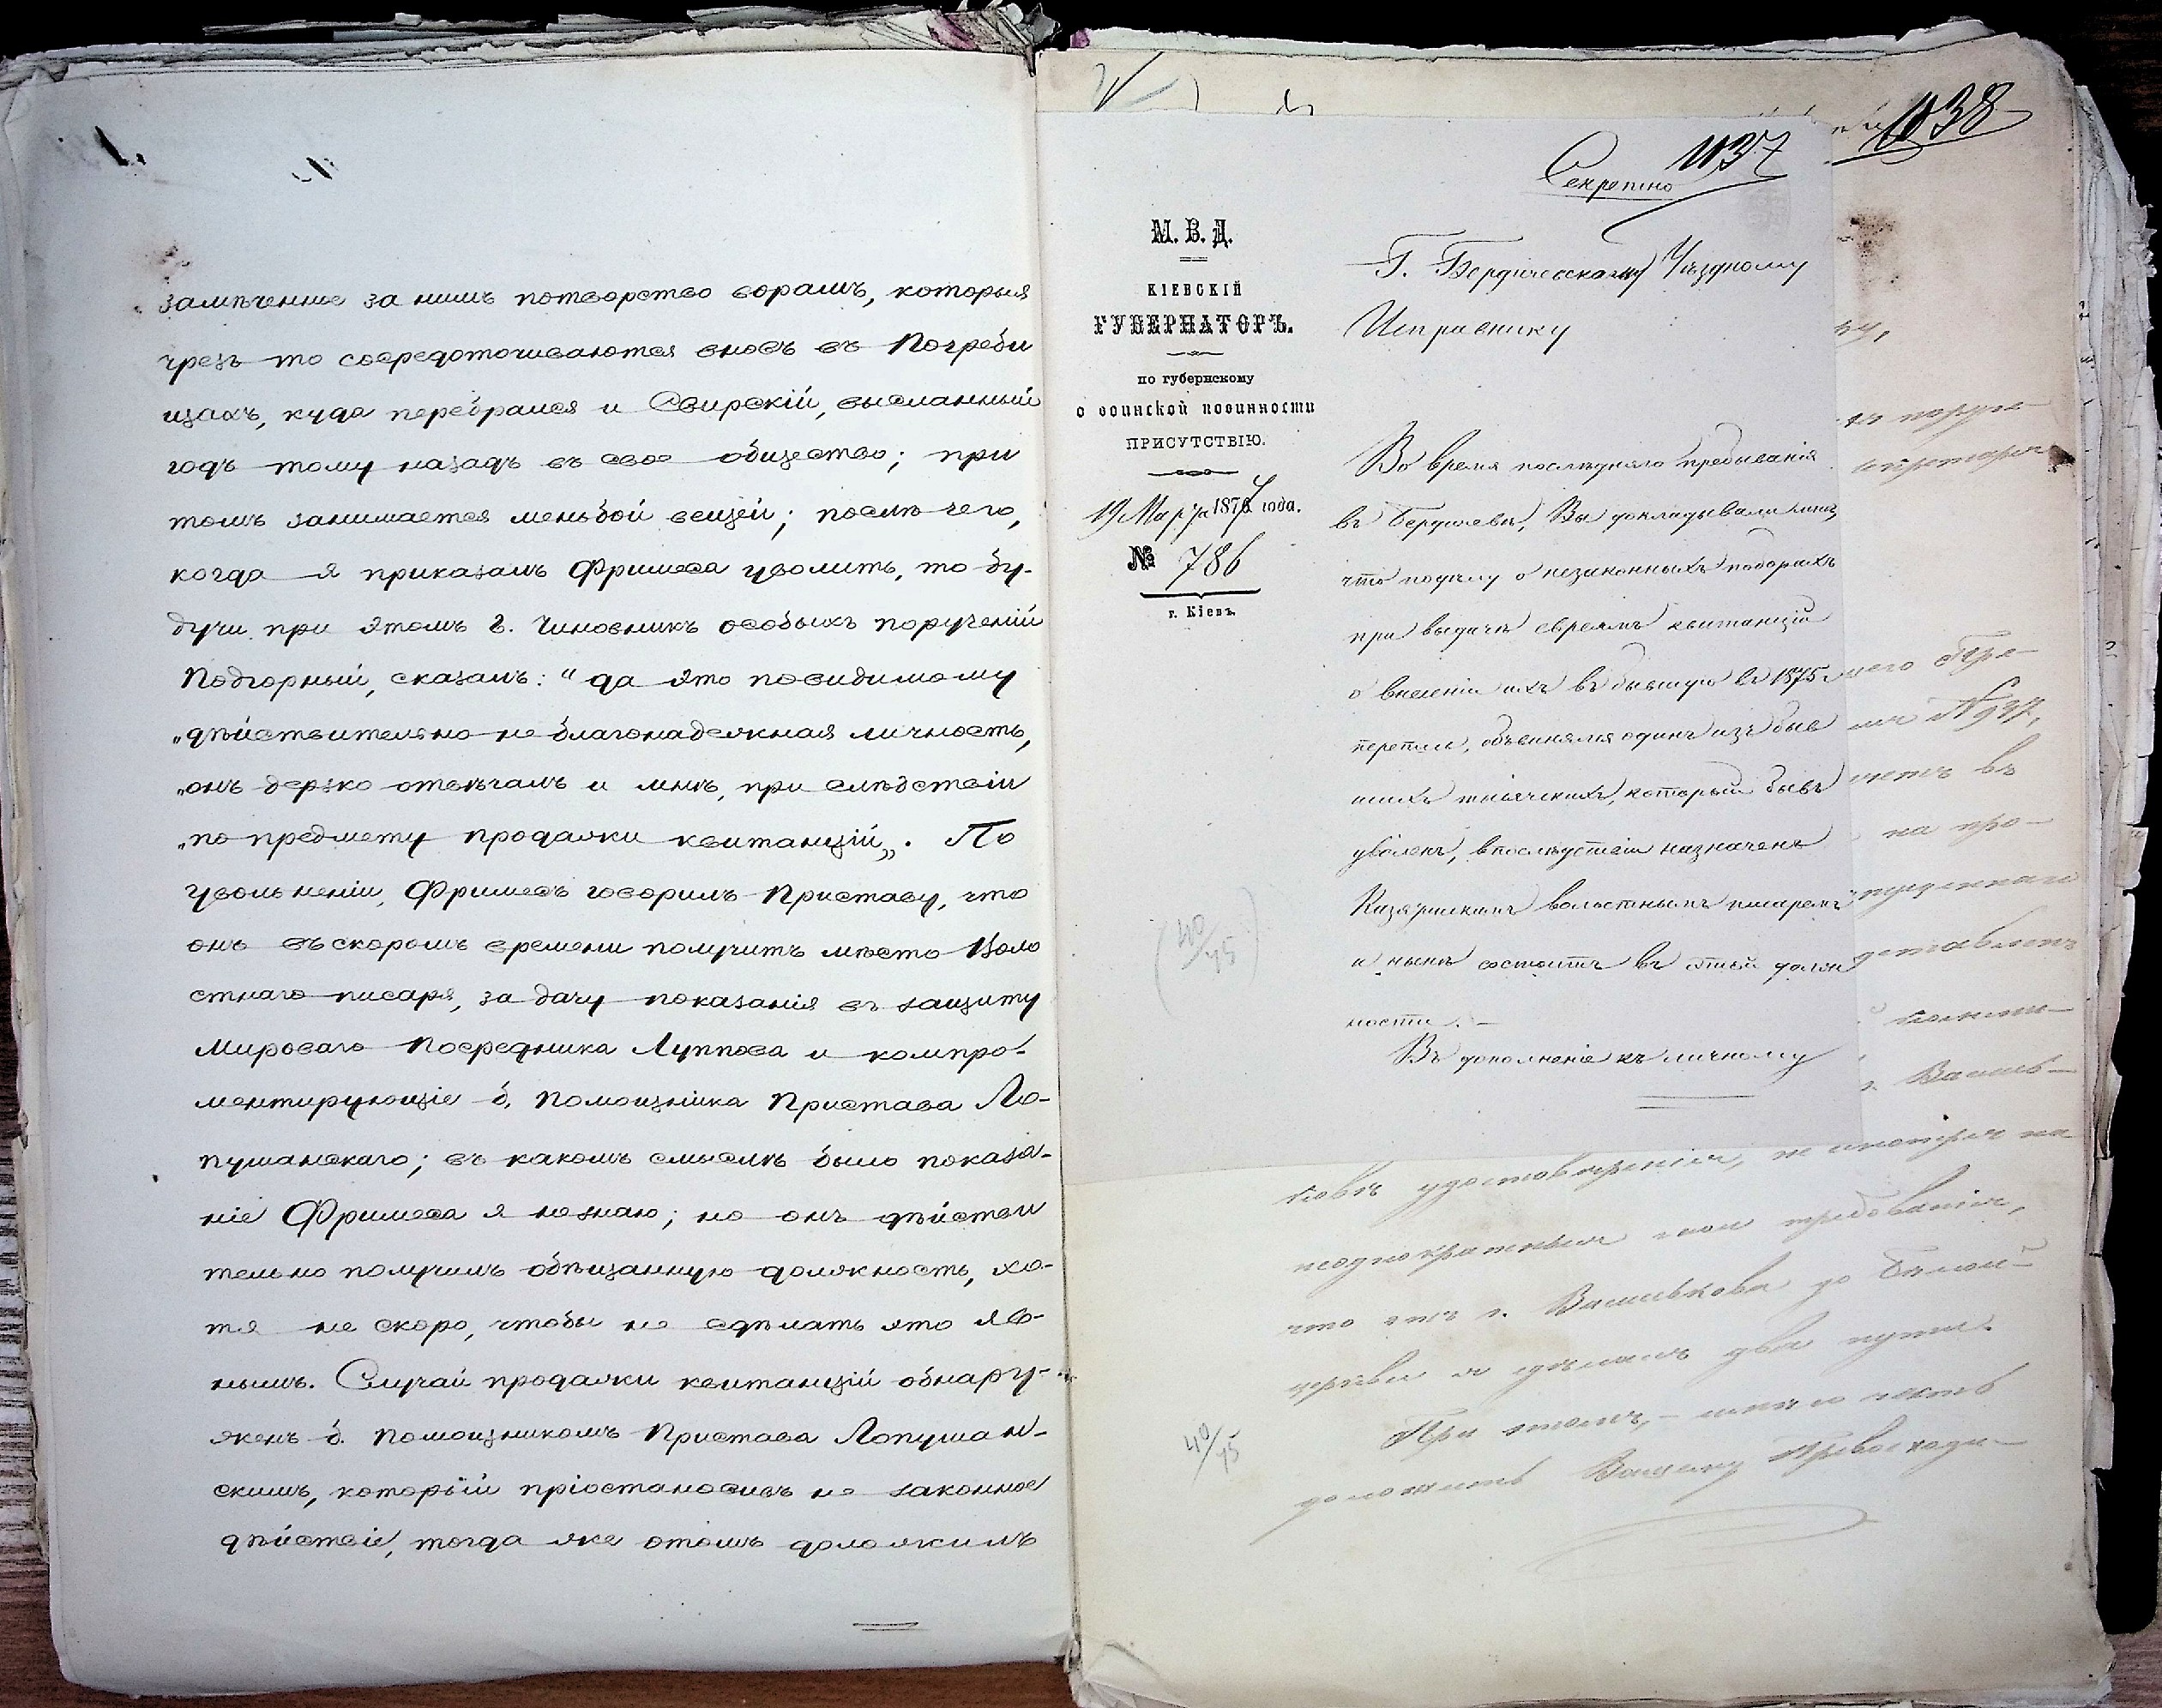 замѣченное за нимъ потворство ворамъ, которыя
чрезъ то сосредоточиваются вновь въ Погреби
щахъ, куда перебрался и Свирскій, высланный
годъ тому назадъ въ свое общество; при
томъ занимается меньбой вещей; послѣ чего,
когда я приказалъ Фримеса уволить, то бу-
дучи при этомъ г. Чиновникъ особыхъ порученій
Подгорный, сказалъ: "да это повидимому
„дѣйствительно не благонадежная личность,
„онъ дерзко отвѣчалъ и мнѣ, при слѣдствіи
„по предмету продажи квитанцій„. По
увольненіи, Фримесъ говорилъ Приставу, что
онъ въ скоромъ времени получитъ мѣсто Воло
стнаго писаря, за дачу показанія въ защиту
Мироваго Посредника Луппова и компро-
ментирующіе б. Помощника Пристава Ло-
пушанскаго; въ какомъ смыслѣ было показа-
ніе Фримеса я не знаю; но онъ дѣйстви
тельно получилъ обѣщанную должность, хо-
тя не скоро, чтобы не сдѣлать это яв-
нымъ. Случай продажи квитанцій обнару-
женъ б. Помощникомъ Пристава Лопушан-
скимъ, который пріостановивъ не законное
дѣйствіе, тогда же отомъ доложилъ
1038
1037
Секретно
М. В. Д.
КІЕВСКІЙ
ГУБЕРНАТОРЪ.
по губернскому
о воинской повинности
ПРИСУТСТВІЮ.
19 Марта 1877 года.
№ 786
г. Кіевъ.
Г. Бердичевскому Уѣздному
Исправнику
Во время послѣдняго пребыванія
въ Бердичевѣ, Вы докладывали мнѣ,
что по дѣлу о незаконныхъ поборахъ
при выдачѣ евреямъ квитанцій
о внесеніи ихъ въ бывшую въ 1875 г.
перепись, обвинялся одинъ изъ быв
шихъ тысяческихъ, который бывъ
уволенъ, впослѣдствіи назначенъ
волостнымъ писаремъ
и нынѣ состоитъ въ этой долж
ности. —
Въ дополненіе къ личному
40/45
№ 937,
на про-
удостовѣренія, не смотря на
неоднократныя мои требованія,
что отъ г. Василькова до Бѣлой
церкви я сдѣлалъ два пути.
При этомъ, — имѣю честь
доложить Вашему Превосходи-
40/45